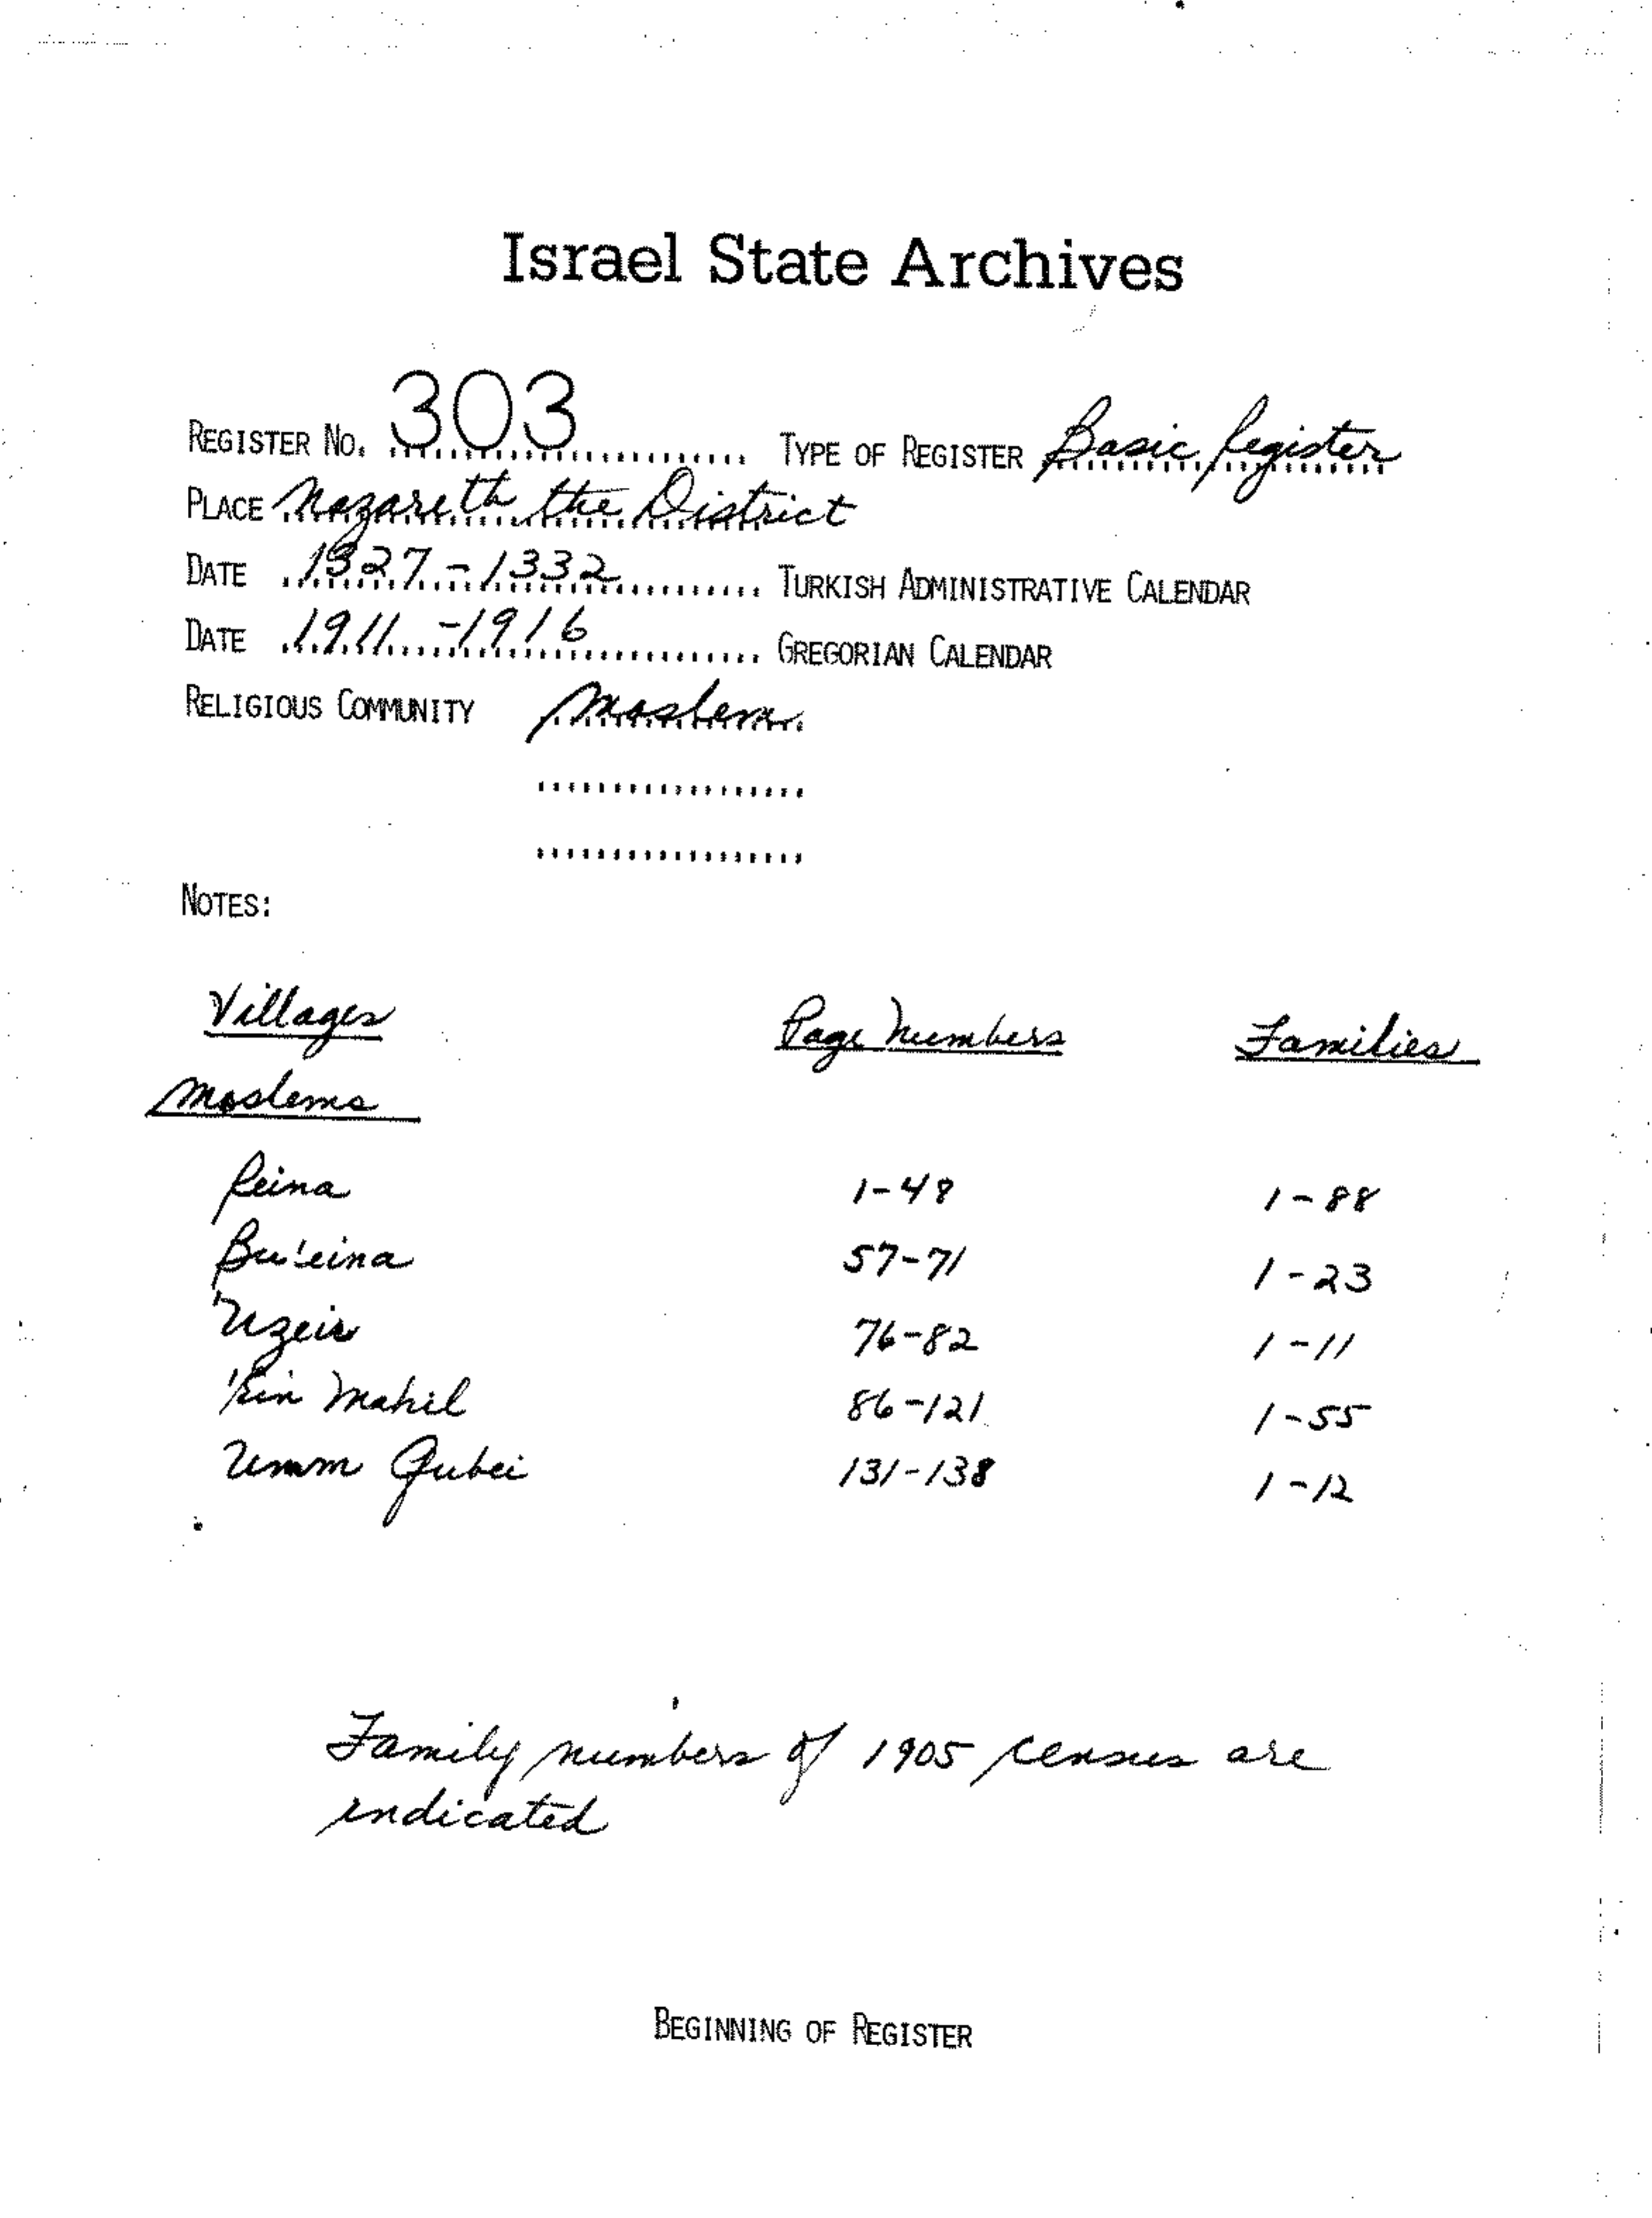 Israel State Archives
REGISTER NO. 303 TYPE OF REGISTER Basic Register
PLACE Nazareth the District
DATE 1327-1332 TURKISH ADMINISTRATIVE CALENDAR
DATE 1911-1916 GREGORIAN CALENDAR
RELIGIOUS COMMUNITY Moslem
NOTES:
Villages Page Numbers Families
Moslems
Reina 1-48 1-88
Bu'eina 57-71 1-23
'Uzeir 76-82 1-11
'Ein Mahil 86-121 1-55
Umm Qubei 131-138 1-12
Family numbers of 1905 census are
indicated
BEGINNING OF REGISTER